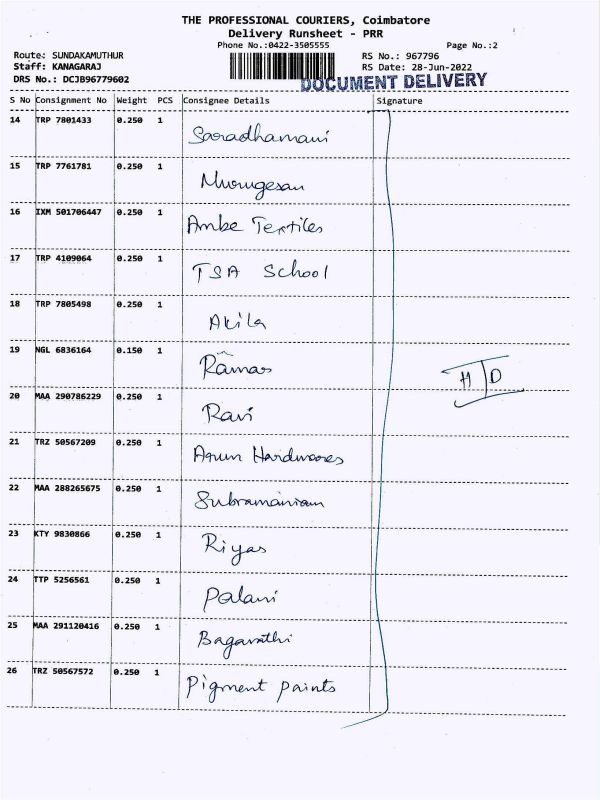 THE PROFESSIONAL COURIERS, Coimbatore
Delivery Runsheet - PRR
Phone No.:0422-3505555 Page No.:2
Route: SUNDAKAMUTHUR RS No.: 967796
Staff: KANAGARAJ RS Date: 28-Jun-2022
DRS No.: DCJB96779602 DOCUMENT DELIVERY
S No Consignment No Weight PCS Consignee Details Signature
14 TRP 7801433 0.250 1 Saradhamani
15 TRP 7761781 0.250 1 Murugesan
16 IXM 501706447 0.250 1 Ambe Textiles
17 TRP 4109064 0.250 1 TSA School
18 TRP 7805498 0.250 1 Akila
19 NGL 6836164 0.150 1 Ramas H/D
20 MAA 290786229 0.250 1 Ravi
21 TRZ 50567209 0.250 1 Arun Hardwares
22 MAA 288265675 0.250 1 Subramaniam
23 KTY 9830866 0.250 1 Riyas
24 TTP 5256561 0.250 1 Palani
25 MAA 291120416 0.250 1 Bagavathi
26 TRZ 50567572 0.250 1 Pigment paints